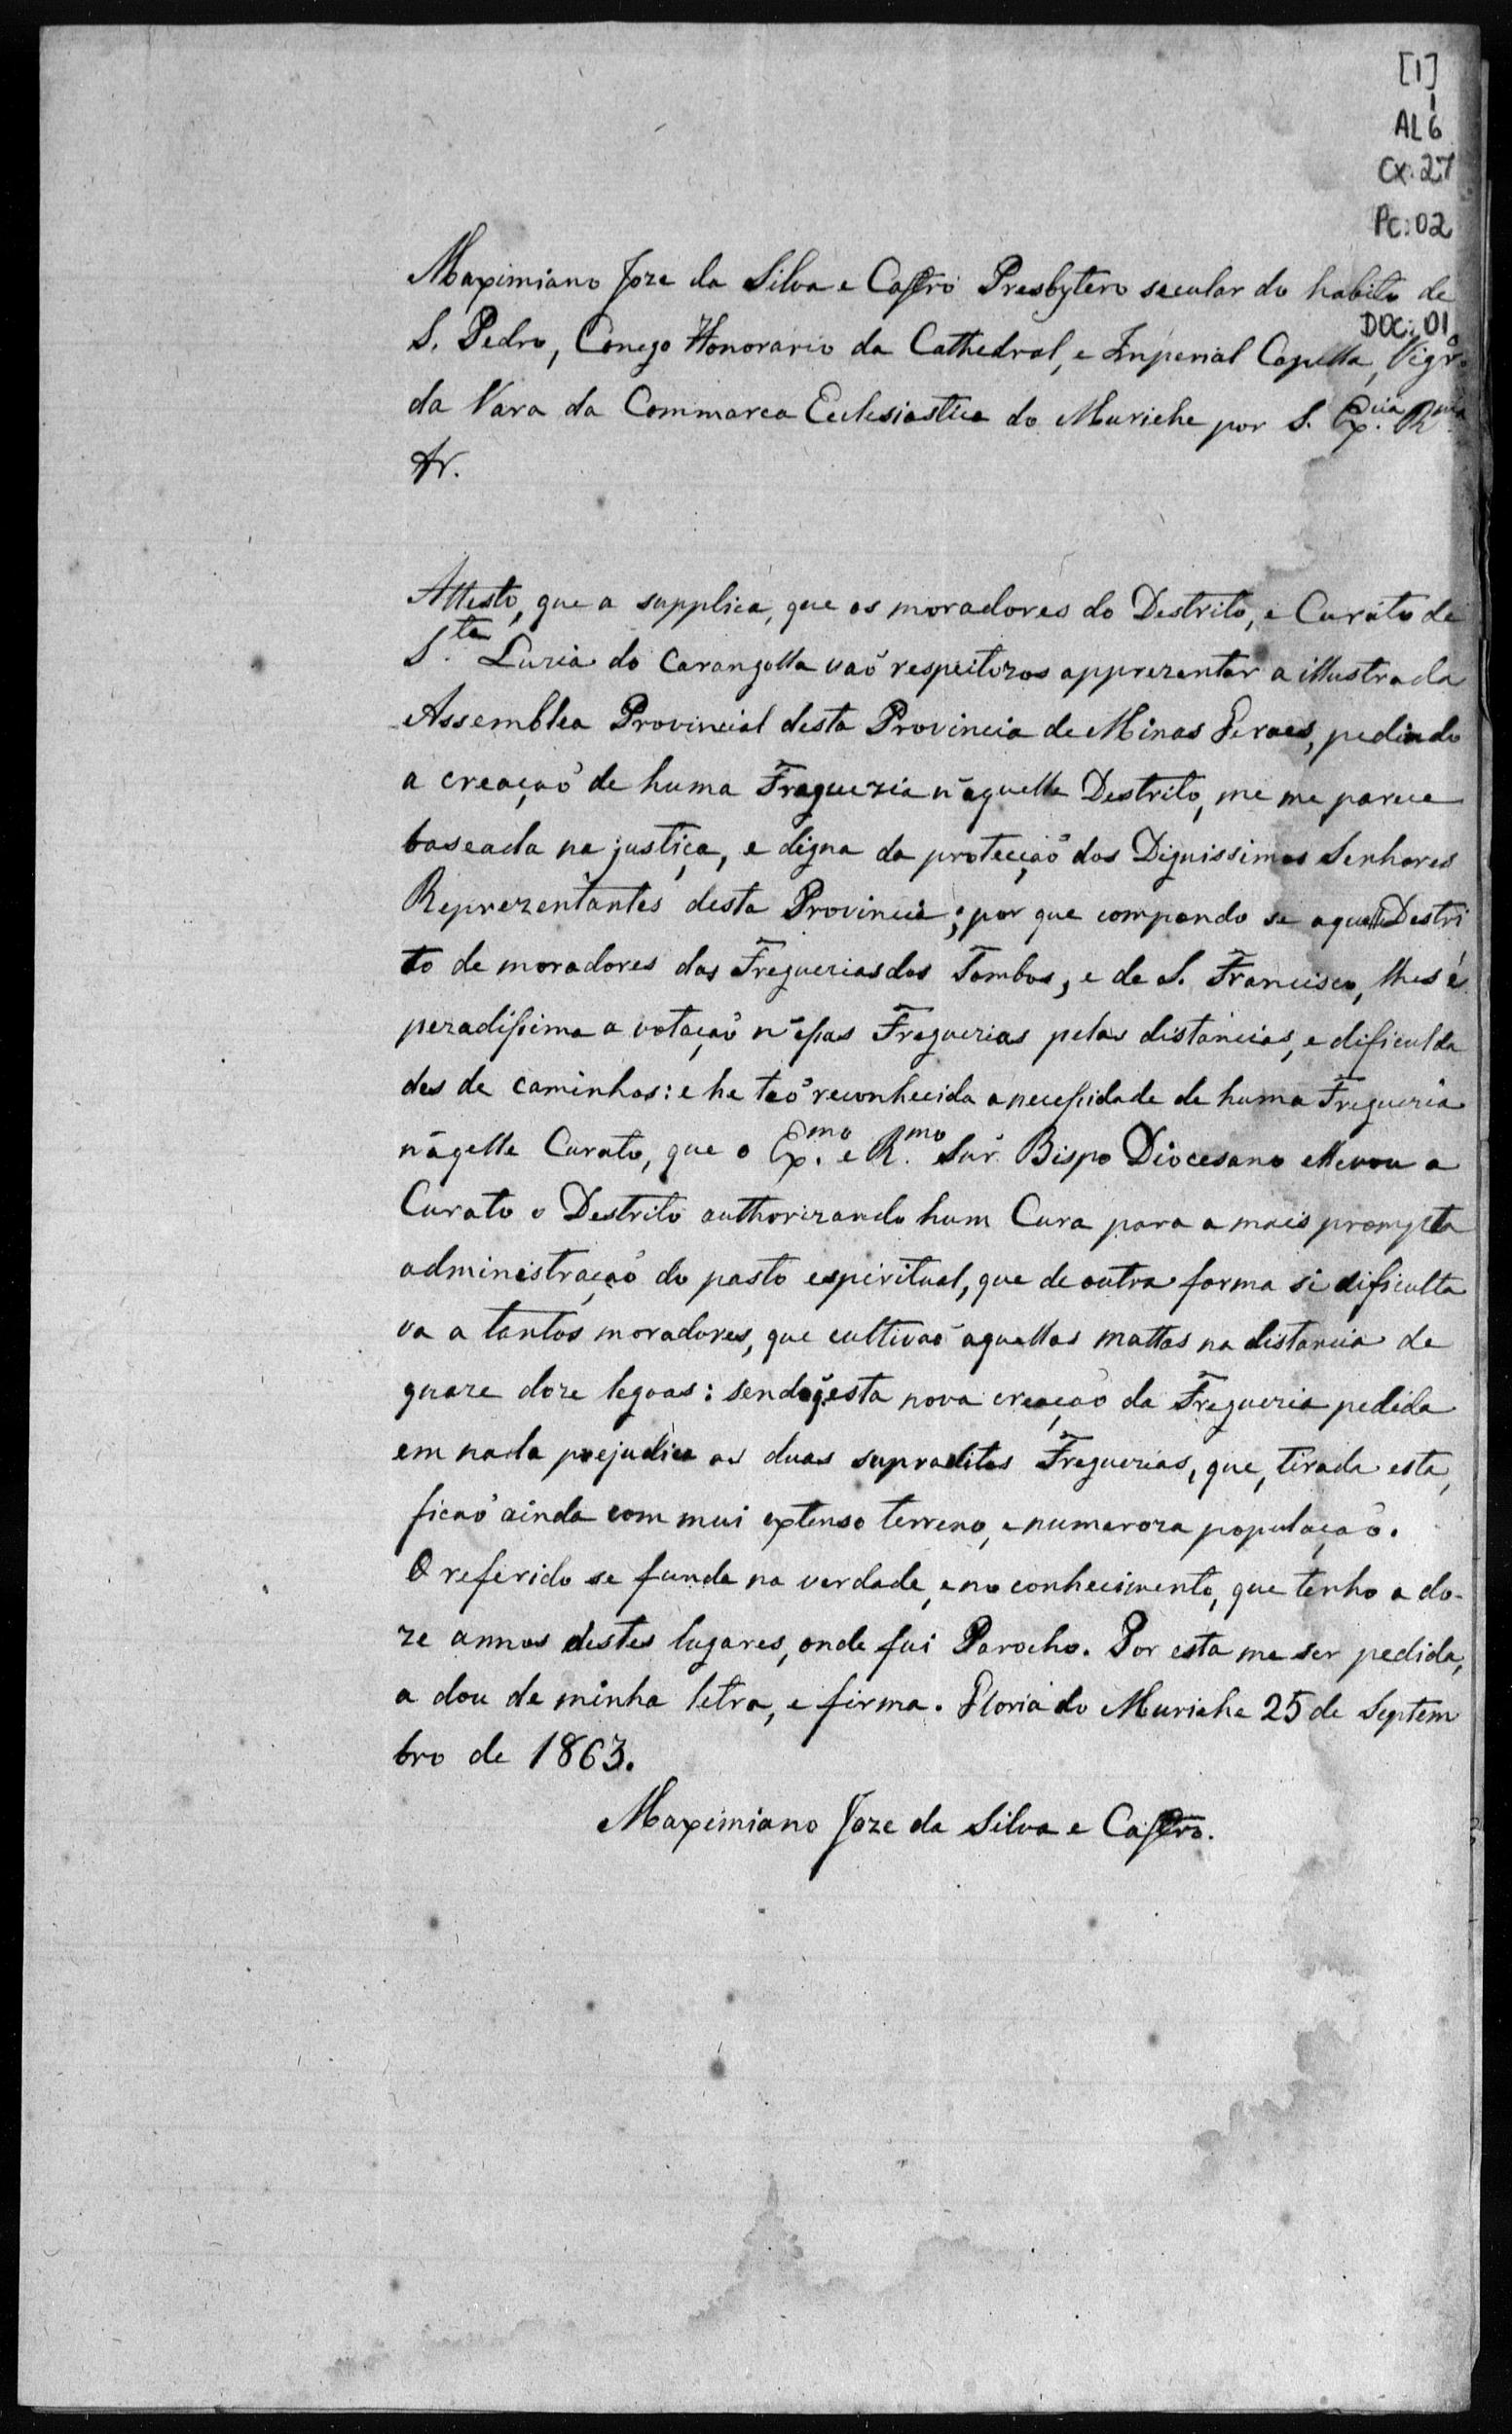 [1]
1
AL6
Cx: 27
Pc: 02
Maximiano Joze da Silva e Castro Presbytero secular do habito de
DOC: 01
S. Pedro, Conego Honorario da Cathedral, e Imperial Capella, Vigr.º
da Vara da Commarca Ecclesiastica do Muriahe por S. Ex.cia R.ma
&.
Attesto, que a supplica, que os moradores do Destrito, e Curato de
S.ta Luzia do Carangolla vaõ respeitozos apprezentar a illustrada
Assemblea Provincial desta Provincia de Minas Geraes, pedindo
a creaçaõ de huma Freguezia n'aquelle Destrito, me me parece
baseada na justiça, e digna da protecçaõ dos Dignissimos Senhores
Reprezentantes desta Provincia; por que compondo se aquelle Destri
to de moradores das Freguezias dos Tombos, e de S. Francisco, lhes é
pezadissima a votaçaõ n'essas Freguezias pelas distancias, e dificulda
des de caminhos: e he taõ reconhecida a necessidade de huma Freguezia
n'aqelle Curato, que o Ex.mo e R.mo Snr. Bispo Diocesano ellevou a
Curato o Destrito authorizando hum Cura para a mais prompta
administraçaõ do pasto espiritual, que de outra forma si dificulta
va a tantos moradores, que cultivaõ aquellas mattas na distancia de
quaze doze legoas: sendo q̃ esta nova creaçaõ da Freguezia pedida
em nada prejudica as duas supraditas Freguezias, que, tirada esta,
ficaõ ainda com mui extenso terreno, e numeroza populaçaõ.
O referido se funda na verdade, e no conhecimento, que tenho a do-
ze annos destes lugares, onde fui Parocho. Por esta me ser pedida,
a dou de minha letra, e firma. Gloria do Muriahe 25 de Septem
bro de 1863.
Maximiano Joze da Silva e Castro.